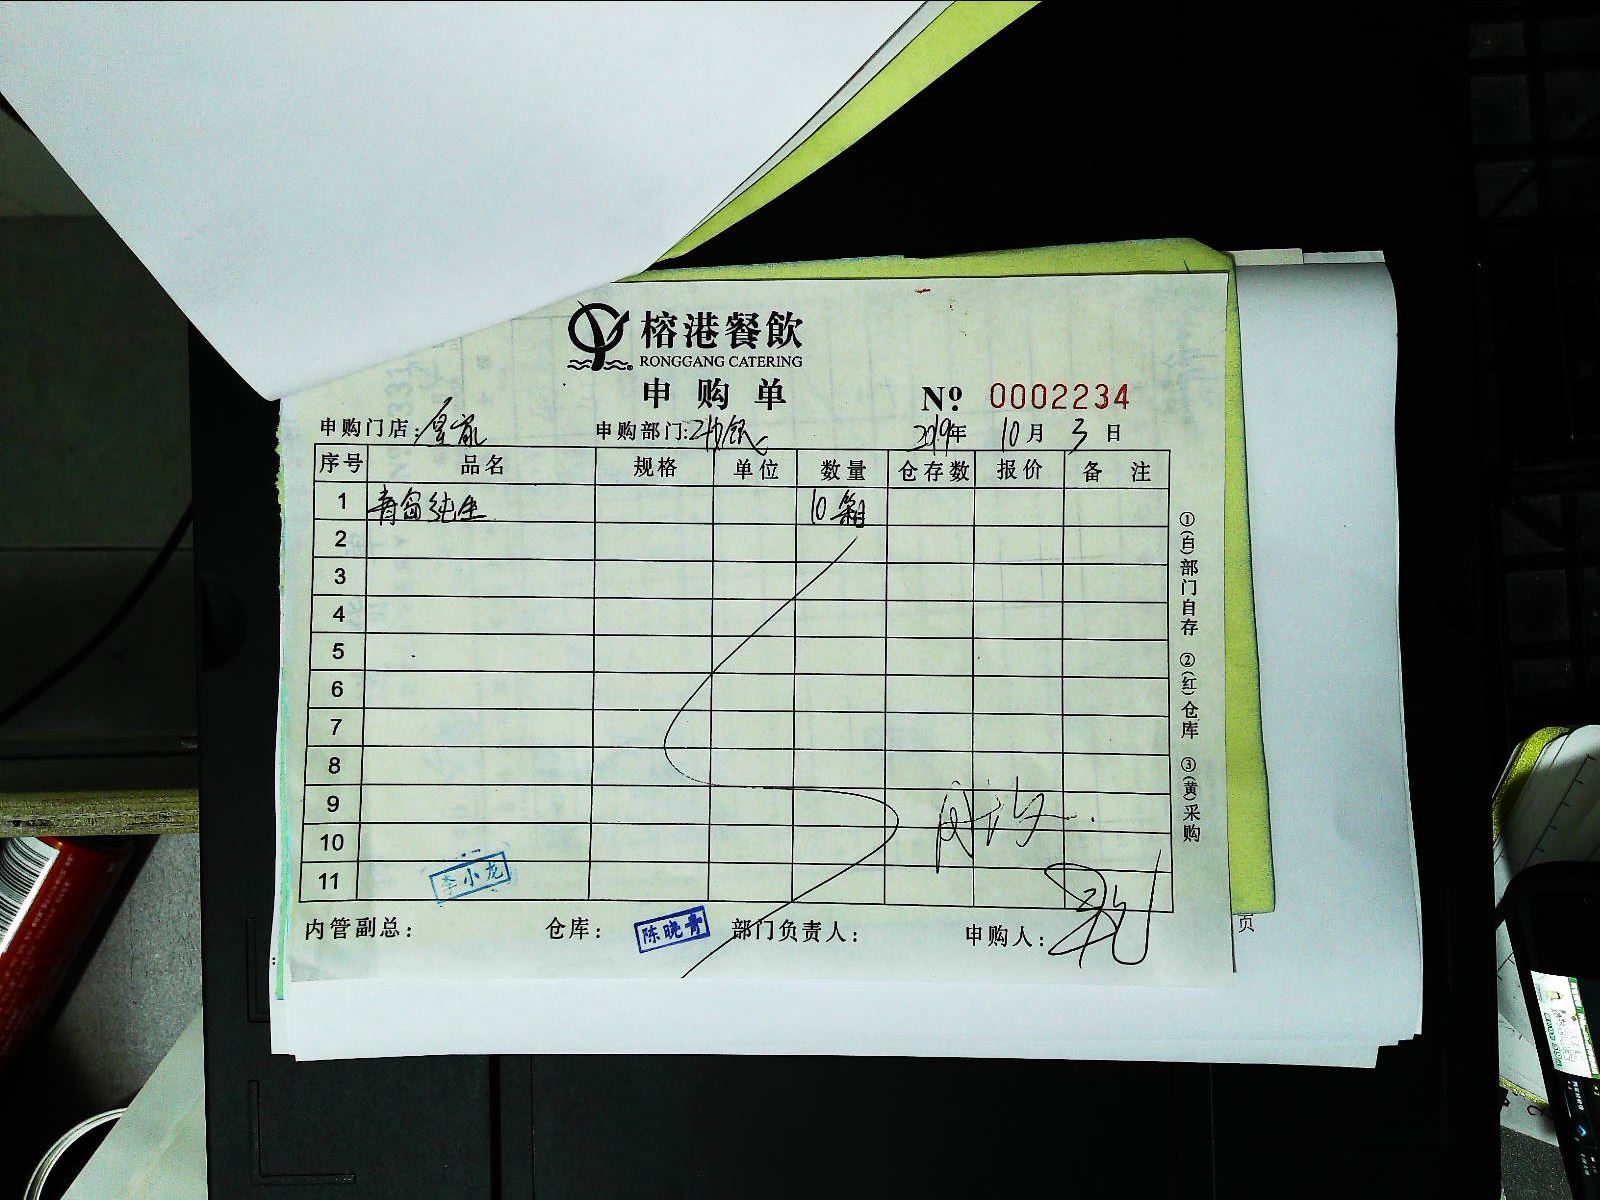 榕港餐飲
RONGGANG CATERING
申购单
No 0002234
申购门店: 申购部门: 2019年 10月 3日
序号 品名 规格 单位 数量 仓存数 报价 备注
1 青岛纯生 10箱
2
3
4
5
6
7
8
9
10
11
李小龙
内管副总: 仓库: 陈晓青 部门负责人: 申购人:
①(自)部门自存 ②(红)仓库 ③(黄)采购
页